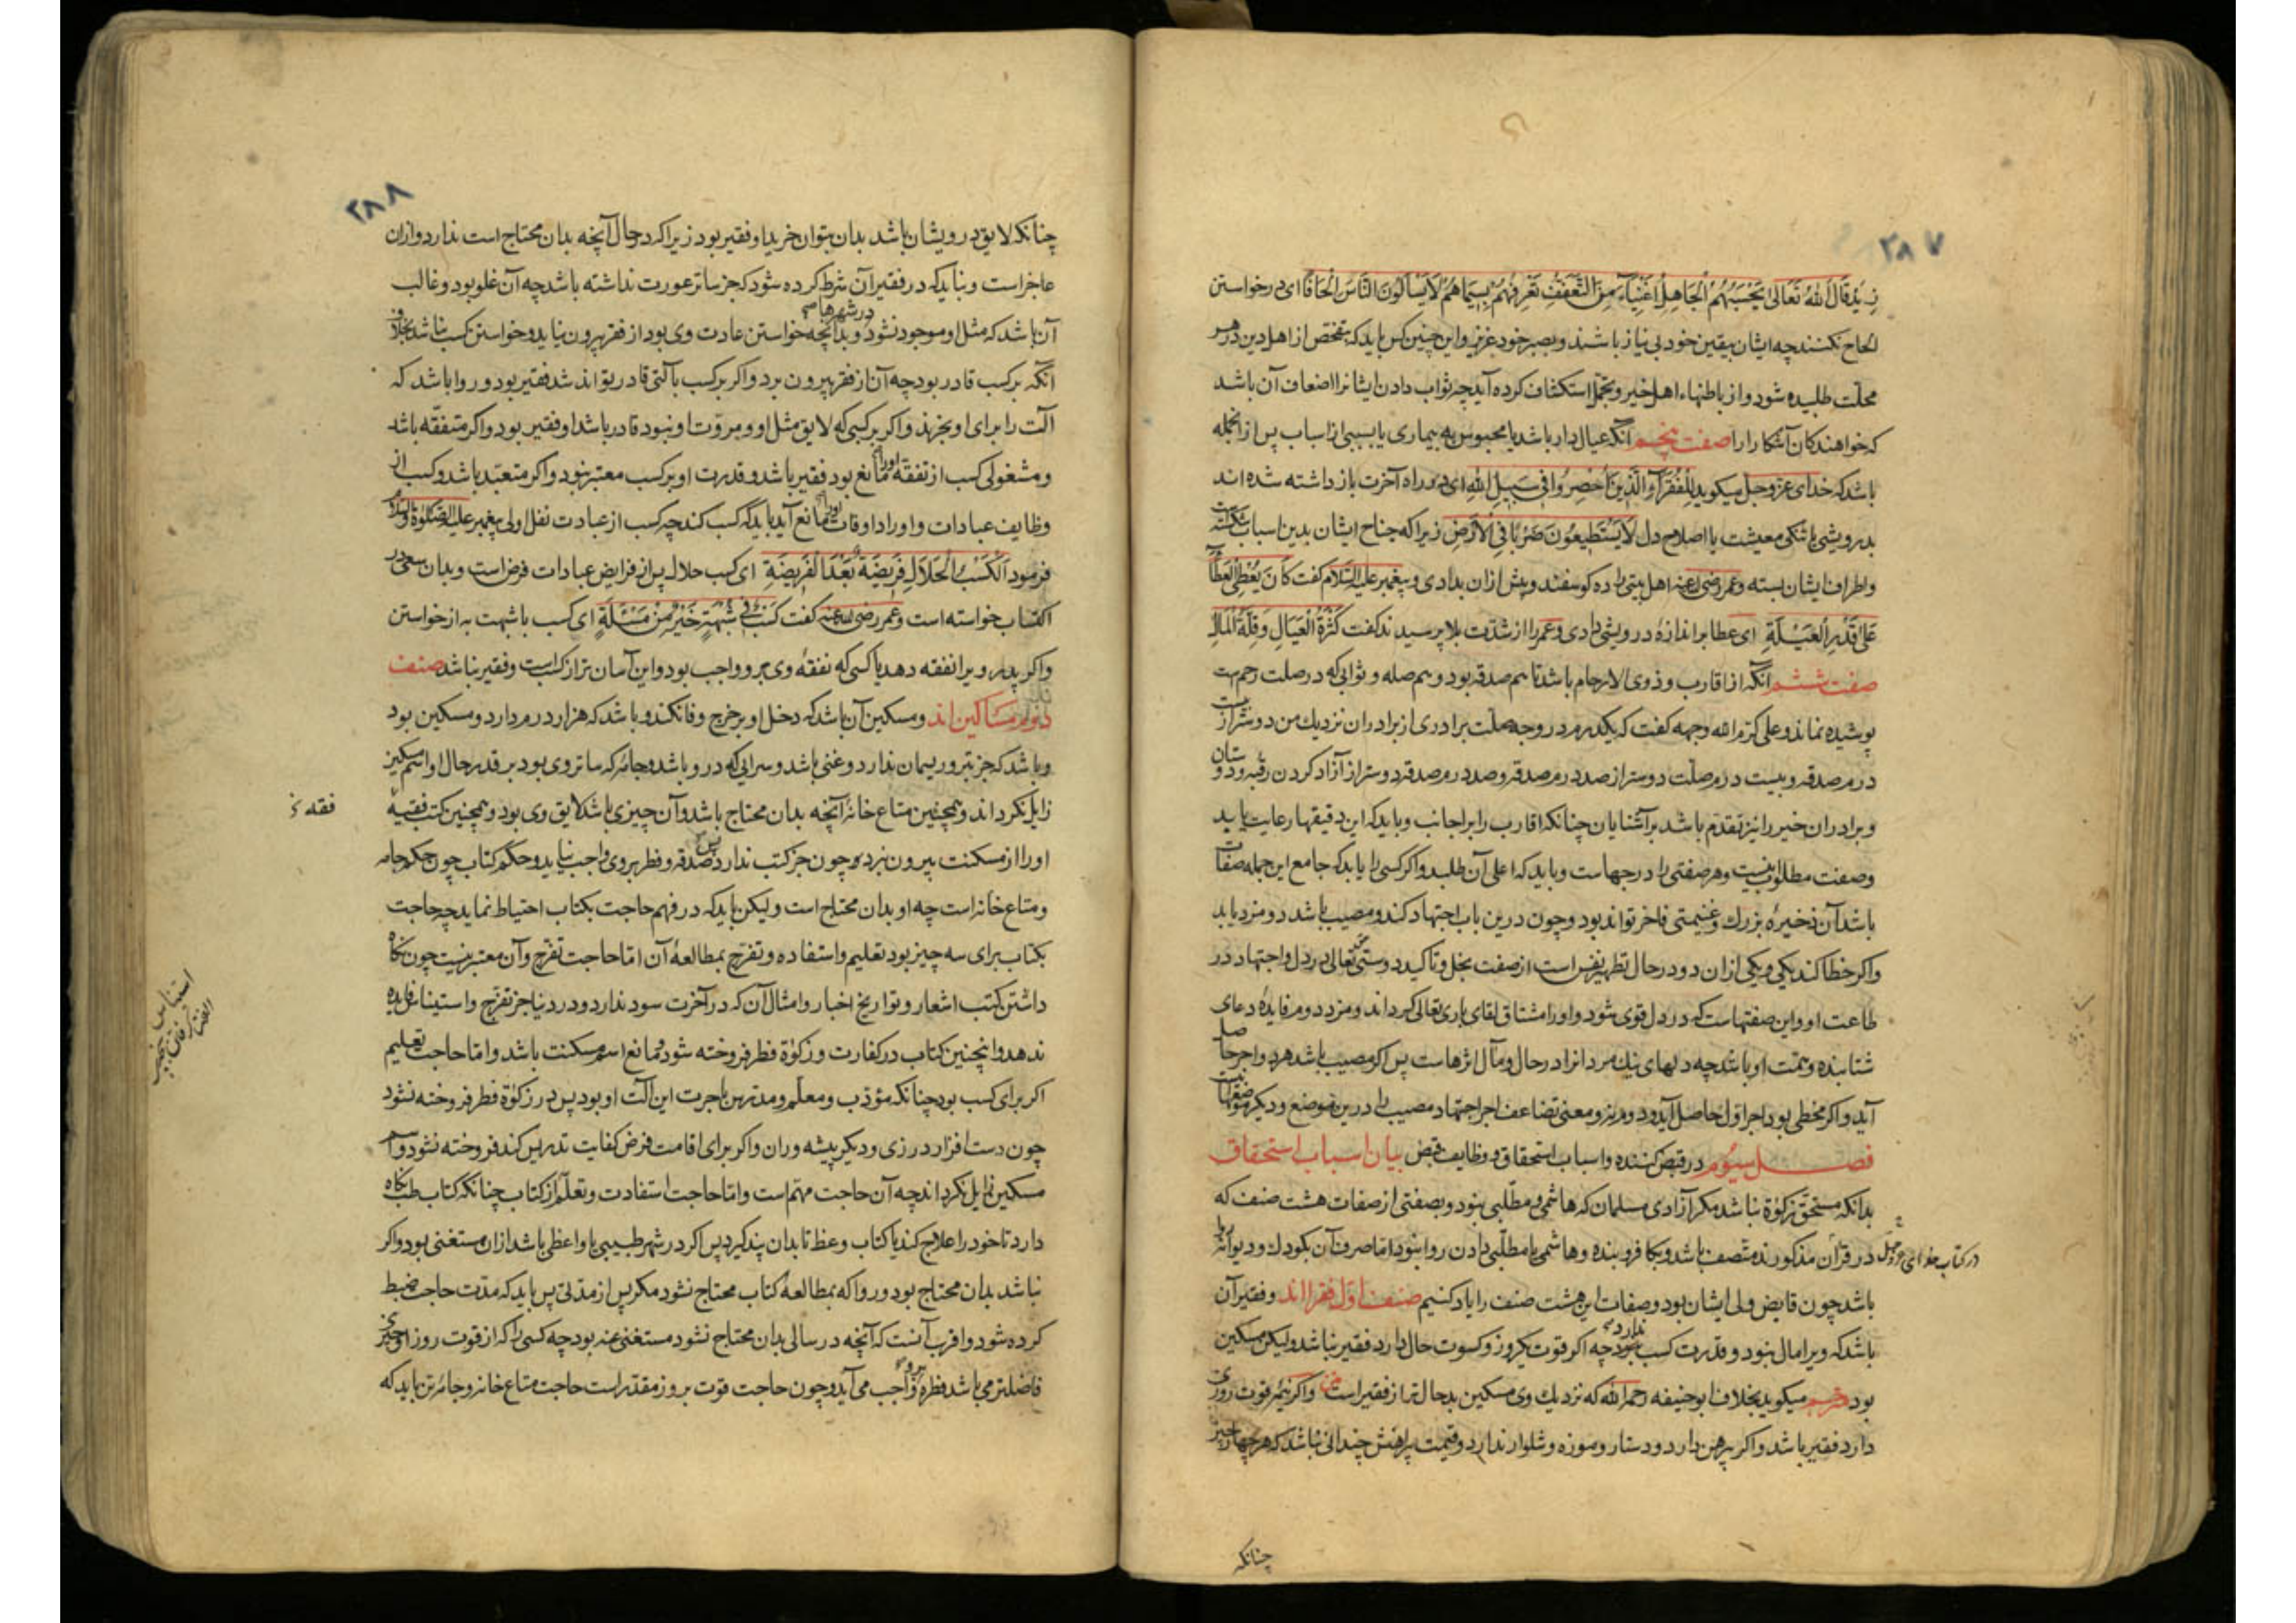 ۲۸۷
زید قال الله تعالی یحسبهم الجاهل اغنیاء من التعفف تعرفهم بسیماهم لا یسألون الناس الحافا ای درخواستن
الحاح نکنند چه ایشان بیقین خود بی نیاز باشند و بصبر خود عزیز و این چنین کس باید که بتفحص از اهل دین در هر
محلت طلبیده شود و از باطنهاء اهل خیر و تجمل استکشاف کرده آید چه ثواب دادن ایشانرا اضعاف آن باشد
که خواهندکان آشکارا را صفت پنجم آنکه عیال دار باشد یا محبوس به بیماری یا بسببی از اسباب پس از انجمله
باشد که خدای عز و جل میکوید للفقراء الذین احصروا فی سبیل الله ای در راه آخرت باز داشته شده اند
بدرویشی یا تنکی معیشت یا اصلاح دل لا یستطیعون ضربا فی الارض زیرا که جناح ایشان بدین اسباب شکسته است
و اطراف ایشان بسته و عمر رضی الله عنه اهل بیتی را ده کوسفند و بیش ازان بدادی و پیغمبر علیه السلام کفت کان یعطی العطاء
علی قدر العیلة ای عطا بر اندازهٔ درویشی دادی و عمر را از شدت بلا پرسیدند کفت کثرة العیال و قلة المال
صفت ششم آنکه از اقارب و ذوی الارحام باشد تا هم صدقه بود و هم صله و ثوابی که در صلت رحم است
پوشیده نماند و علی کرم الله وجهه کفت که یکدرم در وجه صلت برادری از برادران نزدیك من دوستر از بیست
درم صدقه و بیست درم صلت دوستر از صد درم صدقه و صد درم صدقه دوستر از آزاد کردن رقبه و دوستان
و برادران خیر را نیز تقدم باشد بر آشنایان چنانکه اقارب را بر اجانب و باید که این دقیقها رعایت یابد
و صفت مطلوب اینست و هر صفتی را درجهاست و باید که اعلی آن طلبد و اکر کسی را یابد که جامع این جمله صفات
باشد آن ذخیرهٔ بزرك و غنیمتی فاخر تواند بود و چون درین باب اجتهاد کند و مصیب باشد دو مزد یابد
و اکر خطا کند یکی و یکی ازان دو در حال تطهیر نفس است از صفت بخل و تاکید دوستی حق تعالی در دل و اجتهاد در
طاعت او و این صفتهاست که در دل قوی شود و او را مشتاق لقای باری تعالی کرداند و مزد دوم فایدهٔ دعای
ستاننده و همت او باشد چه دلهای نیك مردانرا در حال و مآل اثرهاست پس اکر مصیب باشد هر دو اجر حاصل
آید و اکر مخطی بود اجر اول حاصل آید و دوم نی و معنی تضاعف اجر اجتهاد مصیب را درین موضع و دیکر موضعها اینست
فصل سیوم در قبض کننده و اسباب استحقاق و وظایف قبض بیان اسباب استحقاق
بدانکه مستحق زکوة نباشد مکر آزادی مسلمان که هاشمی و مطلبی نبود و بصفتی از صفات هشت صنف که
در کتاب خدای عز و جل
در قرآن مذکورند متصف باشد و بکافر و بنده و هاشمی یا مطلبی دادن روا نبود اما صرف آن بکودك و دیوانه روا
باشد چون قابض ولی ایشان بود و صفات این هشت صنف را یاد کنیم صنف اول فقرا اند و فقیر آن
باشد که ویرا مال نبود و قدرت کسب ندارد چه اکر قوت یکروز و کسوت حال دارد فقیر نباشد ولیکن مسکین
بود مترجم میکوید بخلاف ابو حنیفه رحمه الله که نزدیك وی مسکین بدحال تر از فقیر است و اکر نیمهٔ قوت روزی
دارد فقیر باشد و اکر پیرهن دارد و دستار و موزه و شلوار ندارد و قیمت پیراهنش چندانی نباشد که هر چهار چیز
چنانکه
۲۸۸
چنانکه لایق درویشان باشد بدان بتوان خرید او فقیر بود زیرا که در حال آنچه بدان محتاج است ندارد و ازان
عاجز است و نباید که در فقیر آن شرط کرده شود که جز ساتر عورت نداشته باشد چه آن غلو بود و غالب
آن باشد که مثل او موجود نشود در شهرها و بدانچه خواستن عادت وی بود از فقر بیرون نیاید و خواستن کسب نباشد بخلاف
آنکه بر کسب قادر بود چه آن از فقر بیرون برد و اکر بر کسب بآلتی قادر تواند شد فقیر بود و روا باشد که
آلت را برای او بخرند و اکر بر کسبی که لایق مثل او و مروت او نبود قادر باشد او فقیر بود و اکر متفقه باشد
و مشغولی کسب از تفقه او را مانع بود فقیر باشد و قدرت او بر کسب معتبر نبود و اکر متعبد باشد و کسب از
وظایف عبادات و اوراد اوقات او را مانع آید باید که کسب کند چه کسب از عبادت نفل اولی پیغمبر علیه الصلوة و السلام
فرمود الکسب الحلال فریضة بعد الفریضة ای کسب حلال پس از فرایض عبادات فرض است و بدان سعی در
اکتساب خواسته است و عمر رضی الله عنه کفت کسب فی شبهة خیر من مسئلة ای کسب با شبهت به از خواستن
و اکر پدر ویرا نفقه دهد یا کسی که نفقهٔ وی بر و واجب بود و این آسان تر از کسب است و فقیر نباشد صنف
دوم مساکین اند و مسکین آن باشد که دخل او بر خرج وفا نکند و باشد که هزار درم دارد و مسکین بود
و باشد که جز تبر و ریسمان ندارد و غنی باشد و سرایی که درو باشد و جامهٔ که ساتر وی بود بر قدر حال او اسم مسکین
زایل نکرداند و همچنین متاع خانه آنچه بدان محتاج باشد و آن چیزی باشد که لایق وی بود و همچنین کتب فقیه
فقه
او را از مسکنت بیرون نبرد و چون جز کتب ندارد پس صدقهٔ فطر بر وی واجب نیاید و حکم کتاب چون حکم جامه
و متاع خانه است چه او بدان محتاج است و لیکن باید که در فهم حاجت بکتاب احتیاط نماید چه حاجت
بکتاب برای سه چیز بود تعلیم و استفاده و تفرج بمطالعهٔ آن اما حاجت تفرج و آن معتبر نیست چون نکاه
داشتن کتب اشعار و تواریخ اخبار و امثال آن که در آخرت سود ندارد و در دنیا جز تفرج و استیناس فایده
ندهد و اینچنین کتاب در کفارت و زکوة فطر فروخته شود و مانع اسم مسکنت باشد و اما حاجت تعلیم
اکر برای کسب بود چنانکه مؤدب و معلم و مدرس باجرت این آلت او بود پس در زکوة فطر فروخته نشود
چون دست افزار درزی و دیکر پیشه وران و اکر برای اقامت فرض کفایت تدریس کند فروخته نشود و اسم
مسکین زایل نکرداند چه آن حاجت مهم است و اما حاجت استفادت و تعلم از کتاب چنانکه کتاب طب نکاه
دارد تا خود را علاج کند یا کتاب وعظ تا بدان پند کیرد پس اکر در شهر طبیبی یا واعظی باشد ازان مستغنی بود و اکر
نباشد بدان محتاج بود و روا که بمطالعهٔ کتاب محتاج نشود مکر پس از مدتی پس باید که مدت حاجت ضبط
کرده شود و اقرب آنست که آنچه در سالی بدان محتاج نشود مستغنی عنه بود چه کسی را که از قوت روز او چیزی
فاضلتر می باشد فطره بر و واجب می آید و چون حاجت قوت بروز مقدر است حاجت متاع خانه و جامهٔ تن باید که